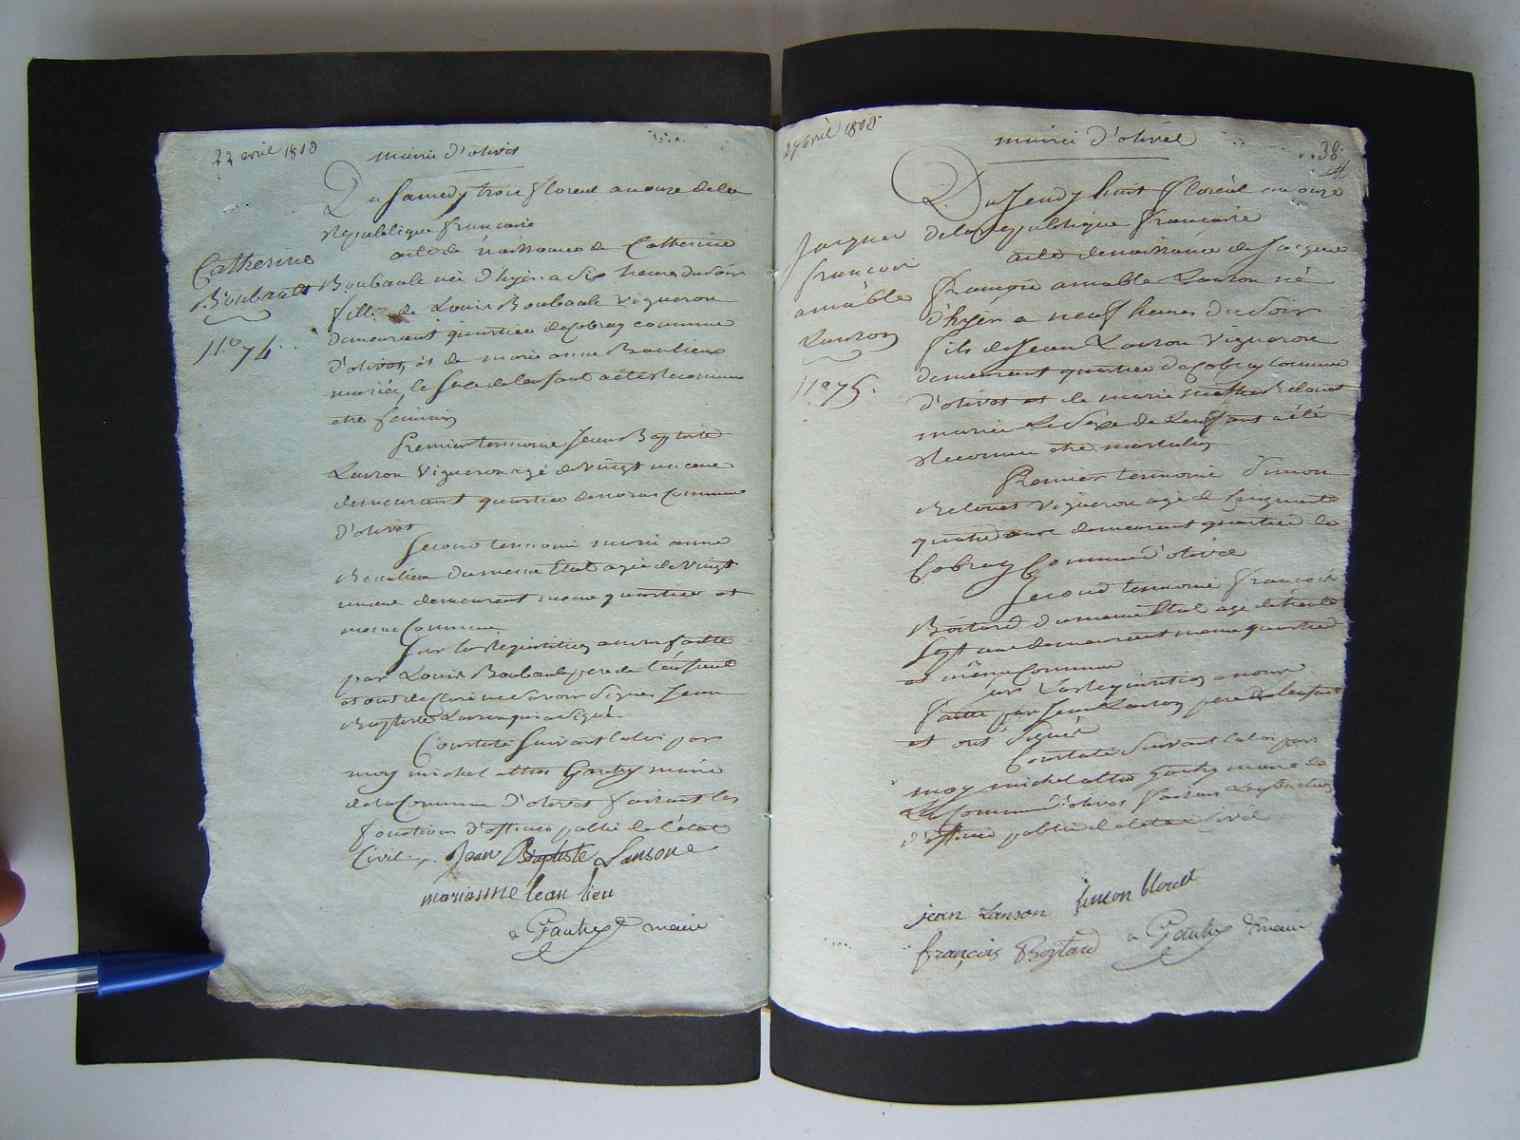 23 avril 1810
mairie d'olivet
Du Samedy trois floreal an onze de la
Republique francaise
acte de naissance de Catherine
Catherine
Boubault
n.º 74.
Boubault née d'hyer a six heures du soir
fille de Louis Boubault Vigneron
demeurant quartier de Cobray commune
d'olivet et de marie anne Beaulieu
mariés, le sexe de lenfant a été reconnu
etre féminin
Premier temoin Jean Baptiste
Lanson Vigneron agé de vingt un ans
demeurant quartier commune
d'olivet
Second temoin marie anne
Beaulieu du meme Etat agée de vingt
un ans demeurant meme quartier et
meme Commune
Sur la requisition a nous faitte
par Louis Boubault pere de l'enfant
et ont déclaré ne savoir signer Jean
Baptiste Lanson qui a signé
Constaté suivant la loi par
moy michel Gauthy maire
de la Commune d'olivet faisant les
fonctions d'officier public de l'état
Civil. Jean Baptiste Lansone
marianne beau lieu
Gauthy maire
mairie d'olivet
38
Du Jeudy huit floreal an onze
de la republique francaise
acte de naissance de Jacques
Jacques
francois
amable
Lanson
n.º 75.
francois amable Lanson né
d'hyer a neuf heures du soir
fils de Jean Lanson Vigneron
demeurant quartier de Cobray commune
d'olivet et de marie Blouet
mariés le Sexe de Lenfant a été
Reconnu etre masculin
Premier temoin Simon
Blouet Vigneron agé de cinquante
quatre ans demeurant quartier de
Cobray Commune d'olivet
Second temoin francois
Boitard du meme Etat agé de trente
sept ans demeurant meme quartier
et même Commune
sur la requisition a nous
faitte par Jean Lanson pere de lenfant
et ont signé
Constaté suivant la loi par
moy michel Gauthy maire de
la Commune d'olivet faisant les fonctions
d'officier public de l'état Civil
jean Lanson simon blouet
françois Boytard Gauthy maire